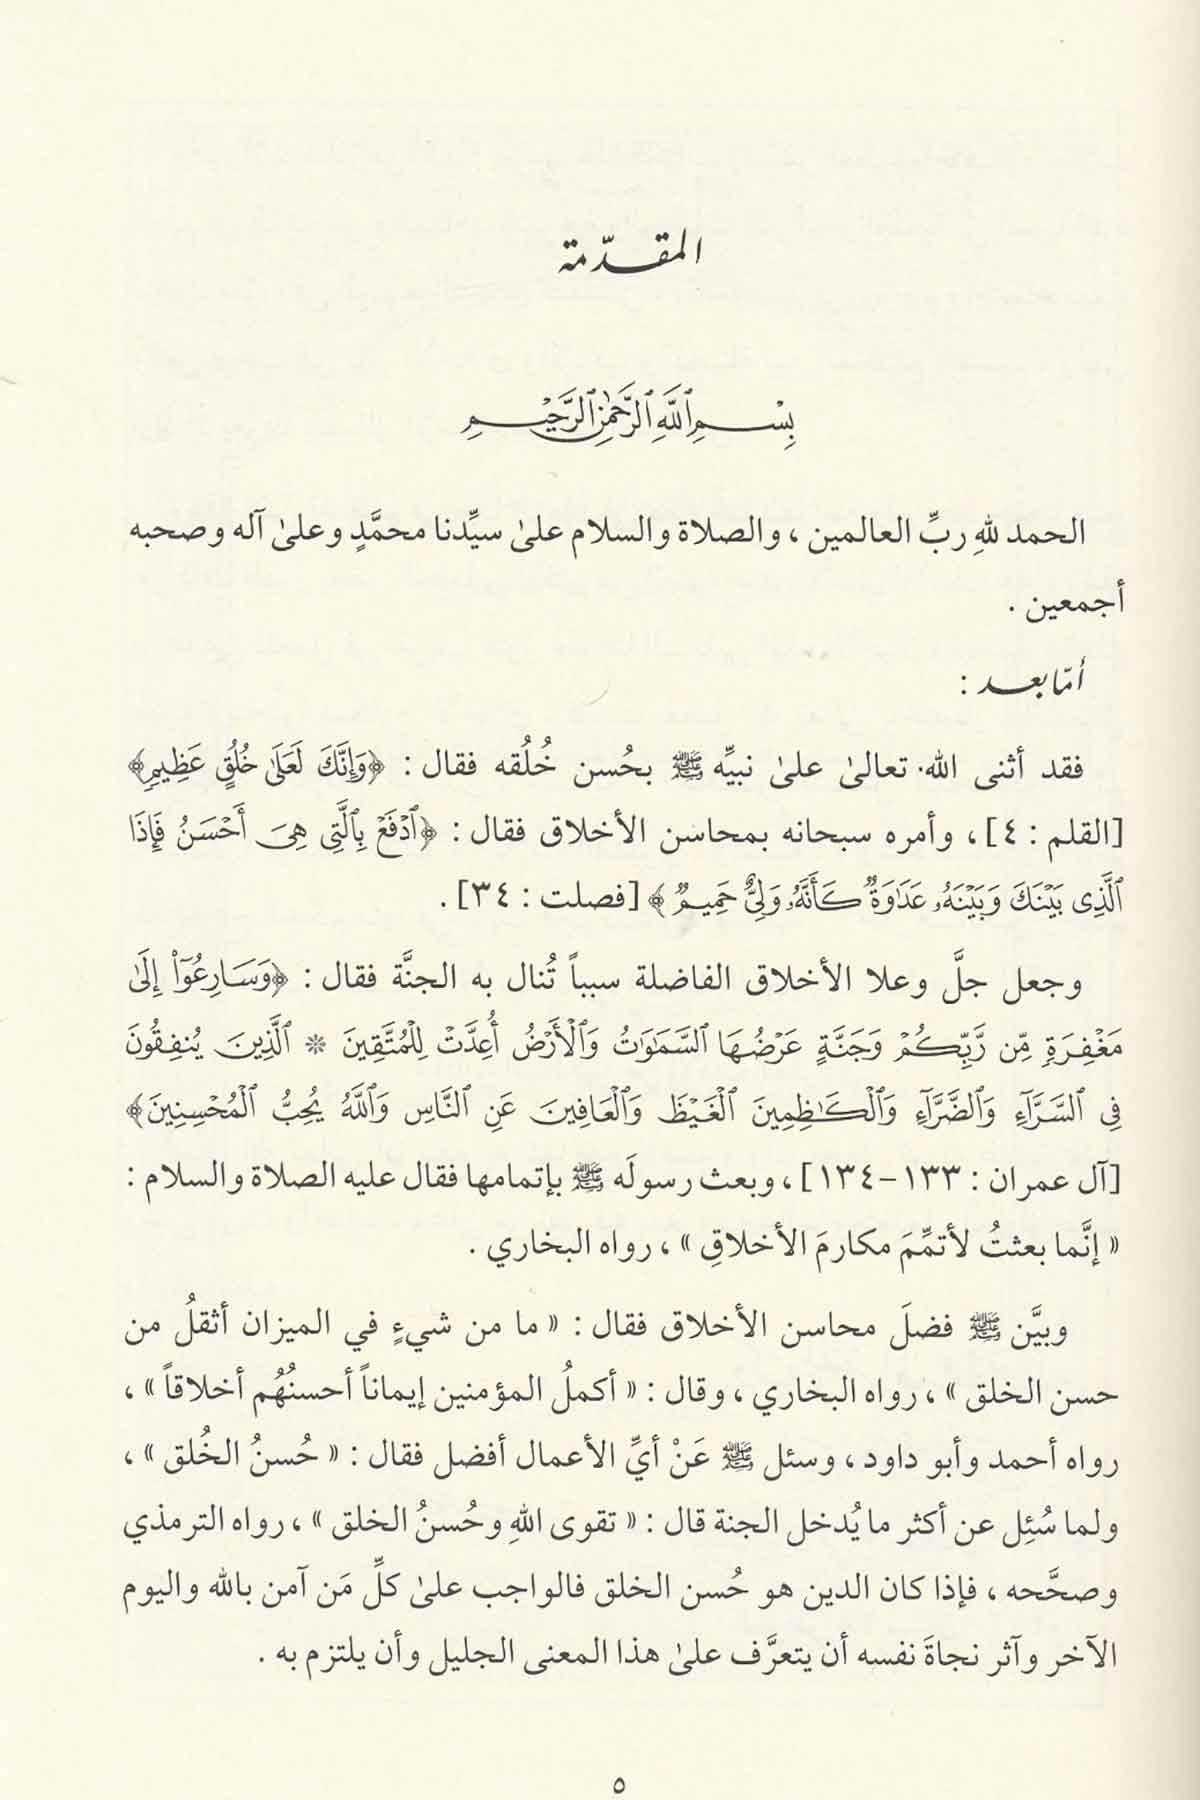 المقدّمة
بِسْمِ ٱللَّهِ ٱلرَّحْمَٰنِ ٱلرَّحِيمِ
الحمد للهِ ربِّ العالمين ، والصلاة والسلام علىٰ سيِّدنا محمَّدٍ وعلىٰ آله وصحبه
أجمعين .
أمّا بعد :
فقد أثنى الله تعالىٰ علىٰ نبيِّه ﷺ بحُسن خُلُقه فقال : ﴿وَإِنَّكَ لَعَلَىٰ خُلُقٍ عَظِيمٍ﴾
[القلم : ٤] ، وأمره سبحانه بمحاسن الأخلاق فقال : ﴿ٱدْفَعْ بِٱلَّتِي هِيَ أَحْسَنُ فَإِذَا
ٱلَّذِي بَيْنَكَ وَبَيْنَهُۥ عَدَٰوَةٌ كَأَنَّهُۥ وَلِيٌّ حَمِيمٌ﴾ [فصلت : ٣٤] .
وجعل جلَّ وعلا الأخلاق الفاضلة سبباً تُنال به الجنَّة فقال : ﴿وَسَارِعُوٓا۟ إِلَىٰ
مَغْفِرَةٍ مِّن رَّبِّكُمْ وَجَنَّةٍ عَرْضُهَا ٱلسَّمَٰوَٰتُ وَٱلْأَرْضُ أُعِدَّتْ لِلْمُتَّقِينَ * ٱلَّذِينَ يُنفِقُونَ
فِي ٱلسَّرَّآءِ وَٱلضَّرَّآءِ وَٱلْكَٰظِمِينَ ٱلْغَيْظَ وَٱلْعَافِينَ عَنِ ٱلنَّاسِ وَٱللَّهُ يُحِبُّ ٱلْمُحْسِنِينَ﴾
[آل عمران : ١٣٣-١٣٤] ، وبعث رسولَه ﷺ بإتمامها فقال عليه الصلاة والسلام :
« إنَّما بعثتُ لأتمِّمَ مكارمَ الأخلاقِ » ، رواه البخاري .
وبيَّن ﷺ فضلَ محاسن الأخلاق فقال : « ما من شيءٍ في الميزان أثقلُ من
حسن الخلق » ، رواه البخاري ، وقال : « أكملُ المؤمنين إيماناً أحسنُهُم أخلاقاً » ،
رواه أحمد وأبو داود ، وسئل ﷺ عَنْ أيِّ الأعمال أفضل فقال : « حُسنُ الخُلق » ،
ولما سُئِل عن أكثر ما يُدخل الجنة قال : « تقوى اللهِ وحُسنُ الخلق » ، رواه الترمذي
وصحَّحه ، فإذا كان الدين هو حُسن الخلق فالواجب علىٰ كلِّ مَن آمن بالله واليوم
الآخر وآثر نجاةَ نفسه أن يتعرَّف علىٰ هذا المعنى الجليل وأن يلتزم به .
٥